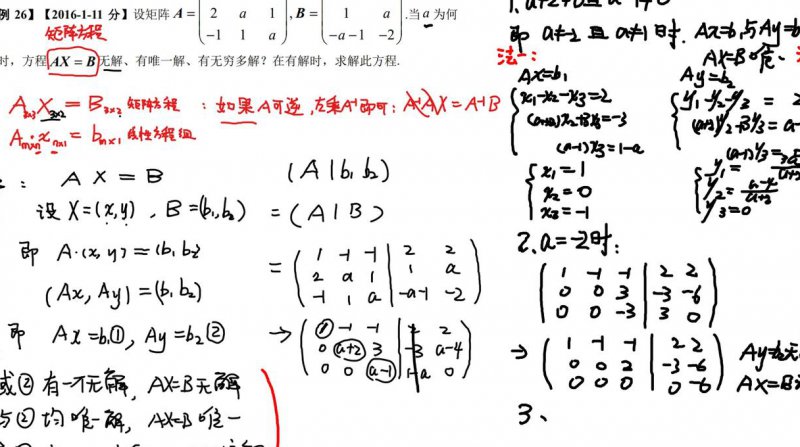 例 26】【2016-1-11 分】设矩阵 A = 2 a 1 , B = 1 a .当 a 为何
-1 1 a -a-1 -2
矩阵方程
时，方程 AX = B 无解、有唯一解、有无穷多解？在有解时，求解此方程.
A3x3 X3x2 = B3x2 矩阵方程 ：如果A可逆，左乘A⁻¹即可：A⁻¹AX = A⁻¹B
Am×n xn×1 = bm×1 线性方程组
： A X = B
设 X=(x,y)，B=(b₁,b₂)
即 A·(x,y)=(b₁,b₂)
(Ax, Ay)=(b₁,b₂)
即 Ax=b₁①，Ay=b₂②
或②有一个无解，AX=B无解
与②均唯一解，AX=B唯一
(A | b₁ b₂)
=(A | B)
= 1 -1 -1 | 2 2
2 a 1 | 1 a
-1 1 a | -a-1 -2
→ 1 -1 -1 | 2 2
0 a+2 3 | -3 a-4
0 0 a-1 | 1-a 0
即 a≠-2 且 a≠1 时. Ax=b₁与Ay=b
法一： AX=B唯一
Ax=b₁
x₁-x₂-x₃=2
(a+2)x₂+3x₃=-3
(a-1)x₃=1-a
x₁=1
x₂=0
x₃=-1
Ay=b₂
y₁-y₂-y₃ = 2
(a+2)y₂+3y₃=a-
(a-1)y₃=
y₁=
y₂= a-4/a+2
y₃=0
2、a=-2时：
1 -1 -1 | 2 2
0 0 3 | -3 -6
0 0 -3 | 3 0
→ 1 -1 -1 | 2 2
0 0 2 | -3 -6
0 0 0 | 0 -6
Ay=b₂无
AX=B
3、